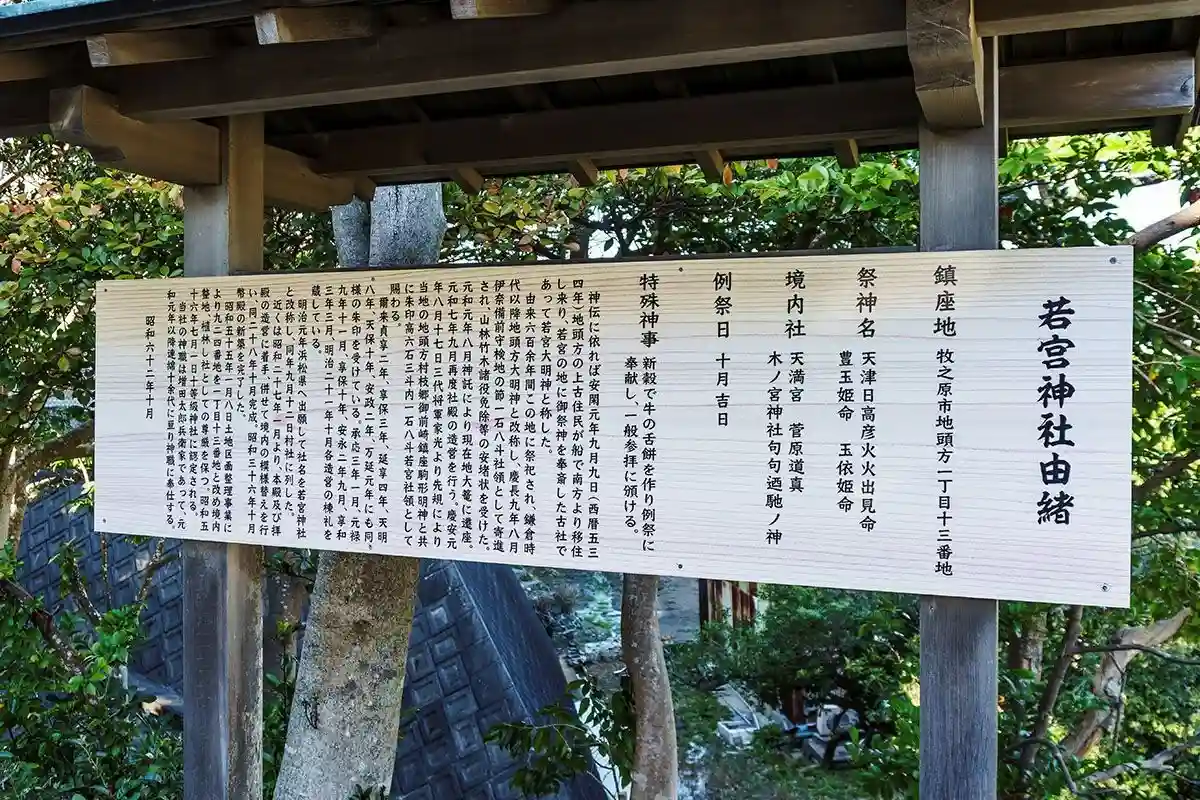 若宮神社由緒
鎮座地 牧之原市地頭方一丁目十三番地
祭神名 天津日高彦火火出見命
豊玉姫命 玉依姫命
境内社 天満宮 菅原道真
木ノ宮神社句句迺馳ノ神
例祭日 十月吉日
特殊神事 新穀で牛の舌餅を作り例祭に
奉献し、一般参拝に頒ける。
神伝に依れば安閑元年九月九日(西暦五三
四年)地頭方の上古住民が船で南方より移住
し来り、若宮の地に御祭神を奉斎した古社で
あって若宮大明神と称した。
由来六百余年間この地に祭祀され、鎌倉時
代以降地頭方大明神と改称し、慶長九年八月
伊奈備前守検地の節一石八斗社領として寄進
され、山林竹木諸役免除等の安堵状を受けた。
元和元年八月神託により現在地大篭に遷座。
元和七年九月再度社殿の造営を行う、慶安元
年八月十七日三代将軍家光より先規により
当地の地頭方村枝郷御前崎鎮座駒形明神と共
に朱印高六石三斗内一石八斗若宮社領として
賜わる。
爾来貞享二年、享保三年、延享四年、天明
八年、天保十年、安政二年、万延元年にも同
様の朱印を受けている。承応三年一月、元禄
九年十一月、享保十年、安永二年九月、享和
三年三月、明治二十一年十月各造営の棟札を
蔵している。
明治元年浜松県へ出願して社名を若宮神社
と改称し、同年九月十二日村社に列した。
近くは昭和二十七年一月より、本殿及び拝
殿の造営に着手、併せて境内の模様替えを行
い、同二十八年十月完成。昭和三十六年十月
幣殿の新築を完了した。
昭和五十五年一月八日土地区画整理事業に
より九二四番地を一丁目十三番地と改め境内
整地、植林し社としての尊厳を保つ。昭和五
十六年七月一日十等級神社に認定される。
当社の神職は増田太郎兵衛家であって、元
和元年以降連綿十余代に亘り神職に奉仕する。
昭和六十二年十月